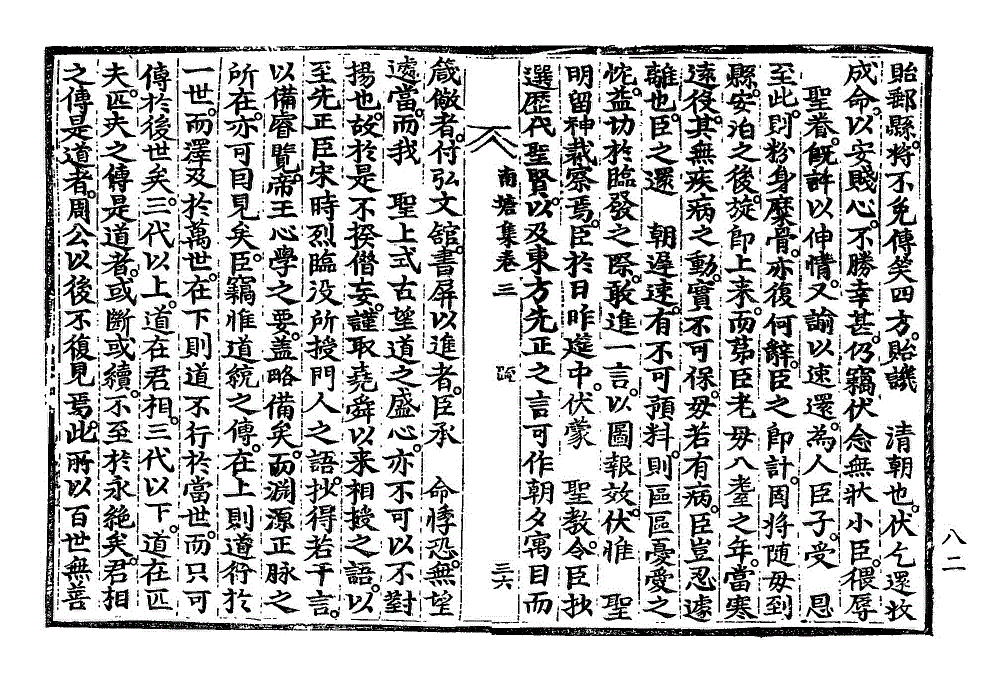 貽郵縣。將不免傳笑四方。貽譏 淸朝也。伏乞還收
成命。以安賤心。不勝幸甚。仍竊伏念無狀小臣。猥辱
聖眷。旣許以伸情。又諭以速還。爲人臣子。受 恩
至此。則粉身糜骨。亦復何辭。臣之卽計。因將隨母到
縣。安泊之後。旋卽上來。而第臣老母八耋之年。當寒
遠役。其無疾病之動。實不可保。母若有病。臣豈忍遽
離也。臣之還 朝遲速。有不可預料。則區區憂愛之
忱。益切於臨發之際。敢進一言。以圖報效。伏惟 聖
明留神裁察焉。臣於日昨筵中。伏蒙 聖敎。令臣抄
選歷代聖賢。以及東方先正之言可作朝夕寓目而
南塘集卷三 疏 三六
箴儆者。付弘文館。書屛以進者。臣承 命悸恐。無望
遽當。而我 聖上式古望道之盛心。亦不可以不對
揚也。故於是不揆僭妄。謹取堯舜以來相授之語。以
至先正臣宋時烈臨沒所授門人之語。抄得若干言。
以備睿覽。帝王心學之要。盖略備矣。而淵源正脉之
所在。亦可目見矣。臣竊惟道統之傳。在上則道行於
一世。而澤及於萬世。在下則道不行於當世。而只可
傳於後世矣。三代以上。道在君相。三代以下。道在匹
夫。匹夫之傳是道者。或斷或續。不至於永絶矣。君相
之傳是道者。周公以後不復見焉。此所以百世無善
八二